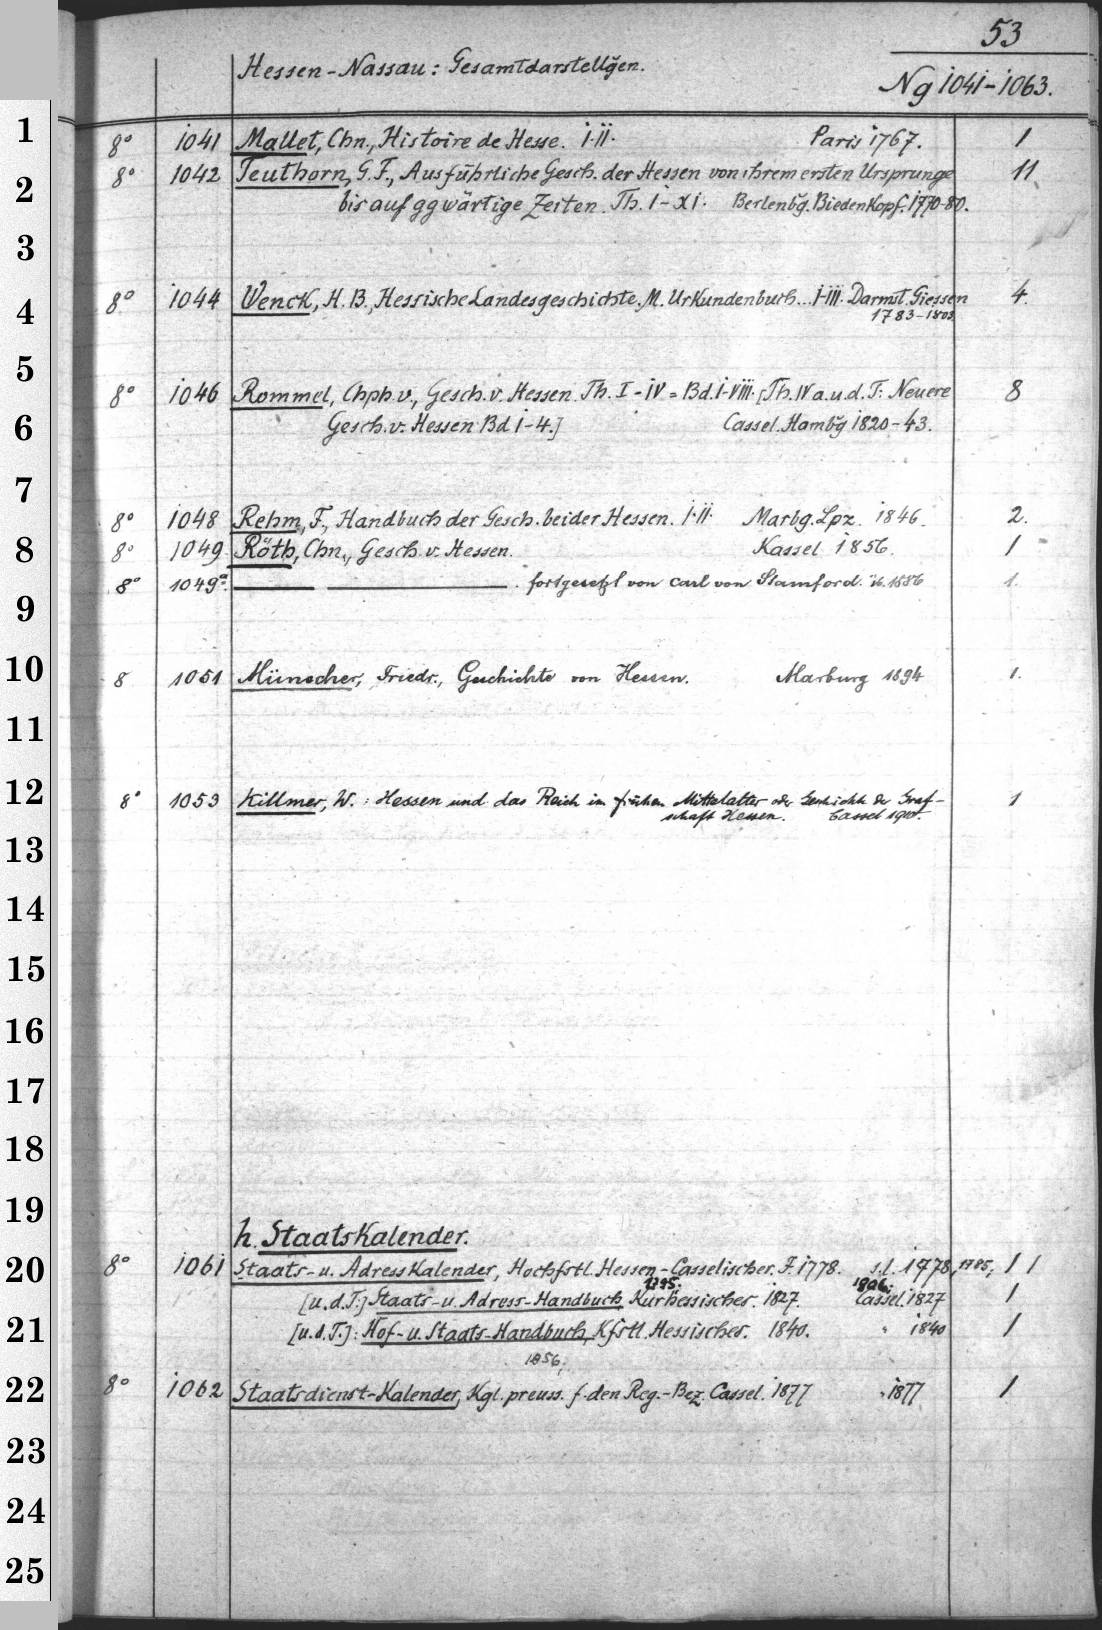 53
Hessen-Nassau: Gesamtdarstellg̃en.
Ng 1041-1063.
1
8° 1041 Mallet, Chn., Histoire de Hesse. I.II. Paris 1767. 1
8° 1042 Teuthorn, G.F., Ausführliche Gesch. der Hessen von ihrem ersten Ursprunge 11
2
bis auf ggwärtige Zeiten. Th. I-XI. Berlenbg̃. Biedenkopf. 1770-80.
3
8° 1044 Wenck, H. B., Hessische Landesgeschichte. M. Urkundenbuch... I-III. Darmst. Giessen 4.
4
1783-1803
5
8° 1046 Rommel, Chph. v., Gesch. v. Hessen. Th. I-IV = Bd. I-VIII. [Th. IV a. u. d. T: Neuere 8
6
Gesch. v. Hessen Bd I-4.] Cassel. Hambg̃ 1820-43.
7
8° 1048 Rehm, F., Handbuch der Gesch. beider Hessen. I.II. Marbg. Lpz. 1846. 2.
8
8° 1049 Röth, Chn., Gesch. v. Hessen. Kassel 1856. 1
8° 1049a. — — . fortgesetzt von Carl von Stamford. ib. 1886 1.
9
10
8 1051 Münscher, Friedr., Geschichte von Hessen. Marburg 1894 1.
11
12
8° 1053 Killmer, W.: Hessen und das Reich im frühen Mittelalter oder Geschichte der Graf- 1
schaft Hessen. Cassel
13
14
15
16
17
18
19
h. Staatskalender.
20
8° 1061 Staats- u. Adresskalender, Hochfstl. Hessen-Casselischer. F. 1778. s.l. 1778, 1785; 1 1
1795. 1806.
[u.d.T:] Staats- u. Adress-Handbuch Kurhessisches. 1827. Cassel 1827 1
21
[u.d.T.]: Hof- u. Staats-Handbuch, Kfstl. Hessisches. 1840. " 1840 1
1856.
22
8° 1062 Staatsdienst-Kalender, Kgl. preuss. f. den Reg.-Bez. Cassel. 1877 " 1877 1
23
24
25